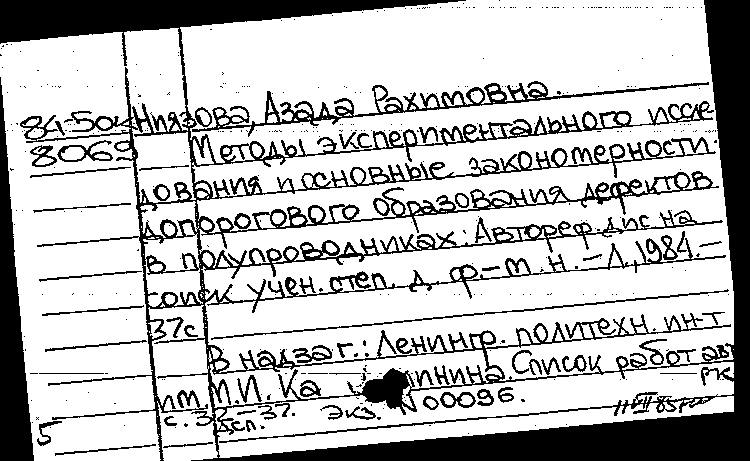 84-5оч Ниязова, Азада Рахимовна.
8069 Методы экспериментального иссле
дования и основные закономерности
допорогового образования дефектов
в полупроводниках: Автореф. дис на
соиск учен. степ. д. ф.-м. н. - Л., 1984. -
37с
В надзаг.: Ленингр. политехн. ин-т
им. М. И. Ка инина. Список работ авт
с. 32-37. Экз. N 00096.
5